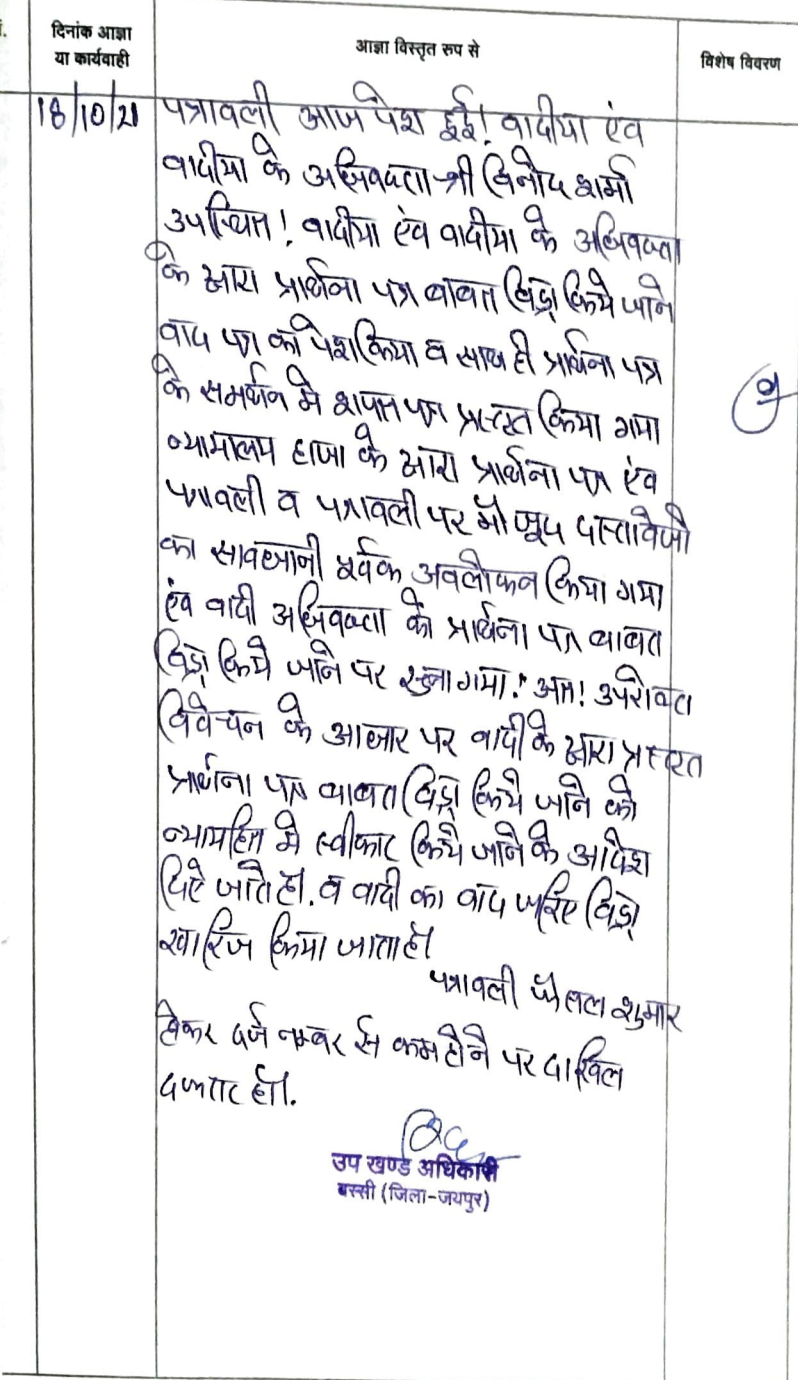 दिनांक आज्ञा
या कार्यवाही
आज्ञा विस्तृत रुप से
विशेष विवरण
18/10/21 पत्रावली आज पेश हुई! वादीया एंव
वादीया के अधिवक्ता श्री विनोद शर्मा
उपस्थित! वादीया एंव वादीया के अधिवक्ता
के द्वारा प्रार्थना पत्र बाबत विड्रो किये जाने
वाद पत्र को पेश किया व साथ ही प्रार्थना पत्र
के समर्थन मे शपत पत्र प्रस्तुत किया गया
न्यायालय हाजा के द्वारा प्रार्थना पत्र एंव
पत्रावली व पत्रावली पर मौजूद दस्तावेजो
का सावधानी पूर्वक अवलोकन किया गया
एंव वादी अधिवक्ता को प्रार्थना पत्र बाबत
विड्रो किये जाने पर सुना गया! अत! उपरोक्त
विवेचन के आधार पर वादी के द्वारा प्रस्तुत
प्रार्थना पत्र बाबत विड्रो किये जाने को
न्यायहित मे स्वीकार किये जाने के आदेश
दिऐ जाते है. व वादी का वाद जरिए विड्रो
खारिज किया जाता है।
पत्रावली फैसल शुमार
होकर दर्ज नम्बर से कम होने पर दाखिल
दफ्तर हो.
उप खण्ड अधिकारी
बस्सी (जिला-जयपुर)